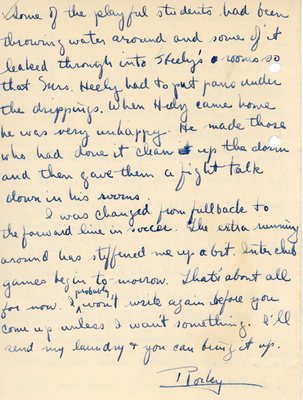 Some of the playful students had been
throwing water around and some of it
leaked through into Heely's rooms so
that Mrs. Heely had to put pans under
the drippings. When Heely came home
he was very unhappy. He made those
who had done it clean up the dorm
and then gave them a fight talk
down in his rooms.
I was changed from fullback to
the forward line in soccer. The extra running
around has stiffened me up a bit. Inter club
games begin to-morrow. That's about all
for now. I probably won't write again before you
come up unless I want something. I'll
send my laundry & you can bring it up.